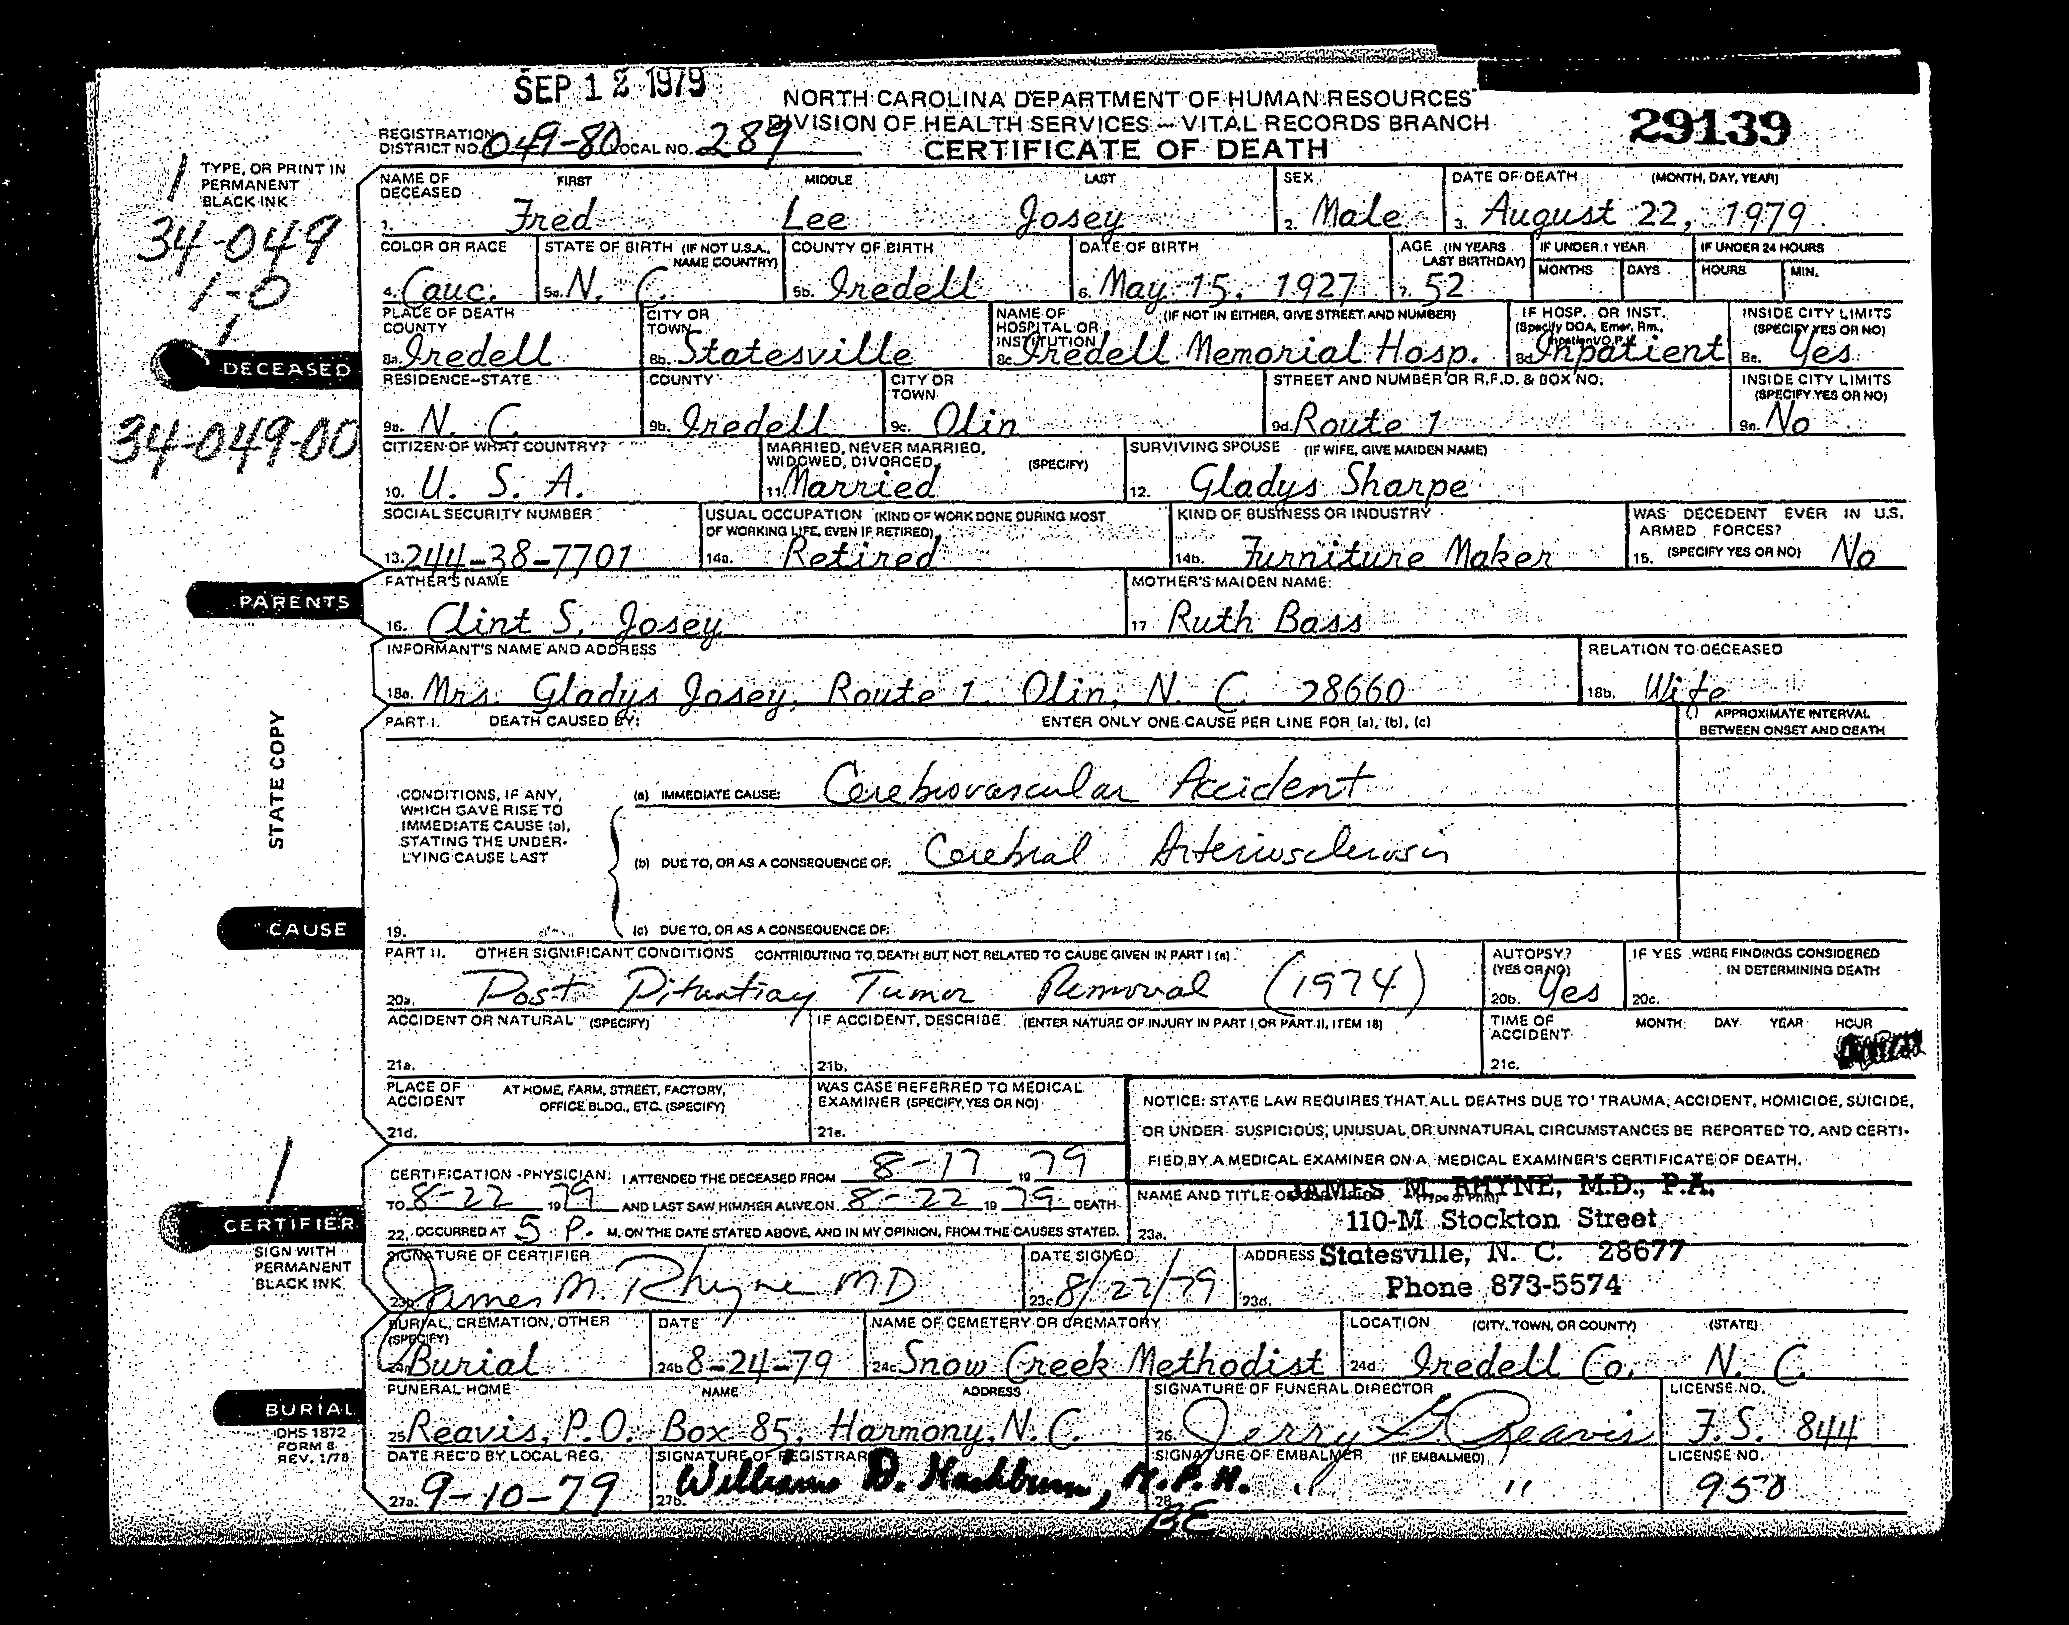 SEP 12 1979
NORTH CAROLINA DEPARTMENT OF HUMAN RESOURCES
DIVISION OF HEALTH SERVICES - VITAL RECORDS BRANCH
CERTIFICATE OF DEATH
29139
REGISTRATION DISTRICT NO. 049-80 LOCAL NO. 289
TYPE, OR PRINT IN
PERMANENT
BLACK INK
34-049
1-0
1
DECEASED
34-049-00
NAME OF DECEASED FIRST MIDDLE LAST SEX DATE OF DEATH (MONTH, DAY, YEAR)
1. Fred Lee Josey 2. Male 3. August 22, 1979
COLOR OR RACE STATE OF BIRTH (IF NOT U.S.A., NAME COUNTRY) COUNTY OF BIRTH DATE OF BIRTH AGE (IN YEARS LAST BIRTHDAY) IF UNDER 1 YEAR MONTHS DAYS IF UNDER 24 HOURS HOURS MIN.
4. Cauc. 5a. N. C. 5b. Iredell 6. May 15, 1927 7. 52
PLACE OF DEATH COUNTY CITY OR TOWN NAME OF HOSPITAL OR INSTITUTION (IF NOT IN EITHER, GIVE STREET AND NUMBER) IF HOSP. OR INST. (Specify DOA, Emer. Rm., INSIDE CITY LIMITS (SPECIFY YES OR NO)
8a. Iredell 8b. Statesville 8c. Iredell Memorial Hosp. 8d. Inpatient 8e. Yes
RESIDENCE-STATE COUNTY CITY OR TOWN STREET AND NUMBER OR R.F.D. & BOX NO. INSIDE CITY LIMITS (SPECIFY YES OR NO)
9a. N. C. 9b. Iredell 9c. Olin 9d. Route 1 9e. No
CITIZEN OF WHAT COUNTRY? MARRIED, NEVER MARRIED, WIDOWED, DIVORCED (SPECIFY) SURVIVING SPOUSE (IF WIFE, GIVE MAIDEN NAME)
10. U. S. A. 11. Married 12. Gladys Sharpe
SOCIAL SECURITY NUMBER USUAL OCCUPATION (KIND OF WORK DONE DURING MOST OF WORKING LIFE, EVEN IF RETIRED) KIND OF BUSINESS OR INDUSTRY WAS DECEDENT EVER IN U.S. ARMED FORCES?
13. 244-38-7701 14a. Retired 14b. Furniture Maker 15. (SPECIFY YES OR NO) No
PARENTS
FATHER'S NAME MOTHER'S MAIDEN NAME:
16. Clint S. Josey 17 Ruth Bass
INFORMANT'S NAME AND ADDRESS RELATION TO DECEASED
18a. Mrs. Gladys Josey, Route 1 Olin, N. C. 28660 18b. Wife
STATE COPY
PART I. DEATH CAUSED BY: ENTER ONLY ONE CAUSE PER LINE FOR (a), (b), (c) APPROXIMATE INTERVAL BETWEEN ONSET AND DEATH
CONDITIONS, IF ANY,
WHICH GAVE RISE TO
IMMEDIATE CAUSE (a),
STATING THE UNDER-
LYING CAUSE LAST
(a) IMMEDIATE CAUSE: Cerebrovascular Accident
(b) DUE TO, OR AS A CONSEQUENCE OF: Cerebral Arteriosclerosis
CAUSE
19. (c) DUE TO, OR AS A CONSEQUENCE OF:
PART II. OTHER SIGNIFICANT CONDITIONS CONTRIBUTING TO DEATH BUT NOT RELATED TO CAUSE GIVEN IN PART I (a) AUTOPSY? (YES OR NO) IF YES WERE FINDINGS CONSIDERED IN DETERMINING DEATH
20a. Post Pituatiay Tumor Removal (1974) 20b. Yes 20c.
ACCIDENT OR NATURAL (SPECIFY) IF ACCIDENT, DESCRIBE (ENTER NATURE OF INJURY IN PART I OR PART II, ITEM 18) TIME OF ACCIDENT MONTH DAY YEAR HOUR
21a. 21b. 21c.
PLACE OF ACCIDENT AT HOME, FARM, STREET, FACTORY, OFFICE BLDG., ETC. (SPECIFY) WAS CASE REFERRED TO MEDICAL EXAMINER (SPECIFY YES OR NO)
21d. 21e.
NOTICE: STATE LAW REQUIRES THAT ALL DEATHS DUE TO TRAUMA, ACCIDENT, HOMICIDE, SUICIDE,
OR UNDER SUSPICIOUS, UNUSUAL OR UNNATURAL CIRCUMSTANCES BE REPORTED TO, AND CERTI-
FIED BY A MEDICAL EXAMINER ON A MEDICAL EXAMINER'S CERTIFICATE OF DEATH.
1
CERTIFIER
SIGN WITH
PERMANENT
BLACK INK
CERTIFICATION - PHYSICIAN: I ATTENDED THE DECEASED FROM 8-17 19 79
TO 8-22 19 79 AND LAST SAW HIM/HER ALIVE ON 8-22 19 79 DEATH
22. OCCURRED AT 5 P. M. ON THE DATE STATED ABOVE, AND IN MY OPINION, FROM THE CAUSES STATED.
NAME AND TITLE OF (Type or Print)
JAMES M. RHYNE, M.D., P.A.
23a. 110-M Stockton Street
SIGNATURE OF CERTIFIER DATE SIGNED ADDRESS Statesville, N. C. 28677
23b. James M. Rhyne MD 23c. 8/22/79 23d. Phone 873-5574
BURIAL, CREMATION, OTHER (SPECIFY) DATE NAME OF CEMETERY OR CREMATORY LOCATION (CITY, TOWN, OR COUNTY) (STATE)
24a. Burial 24b. 8-24-79 24c. Snow Creek Methodist 24d. Iredell Co. N. C.
BURIAL
DHS 1872
FORM 8
REV. 1/78
FUNERAL HOME NAME ADDRESS SIGNATURE OF FUNERAL DIRECTOR LICENSE NO.
25 Reavis, P.O. Box 85, Harmony, N. C. 26. Jerry G Reavis F.S. 844
DATE REC'D BY LOCAL REG. SIGNATURE OF REGISTRAR SIGNATURE OF EMBALMER (IF EMBALMED) LICENSE NO.
27a. 9-10-79 27b. William D. Hashburn, M.P.H. 28. " " 950
BE